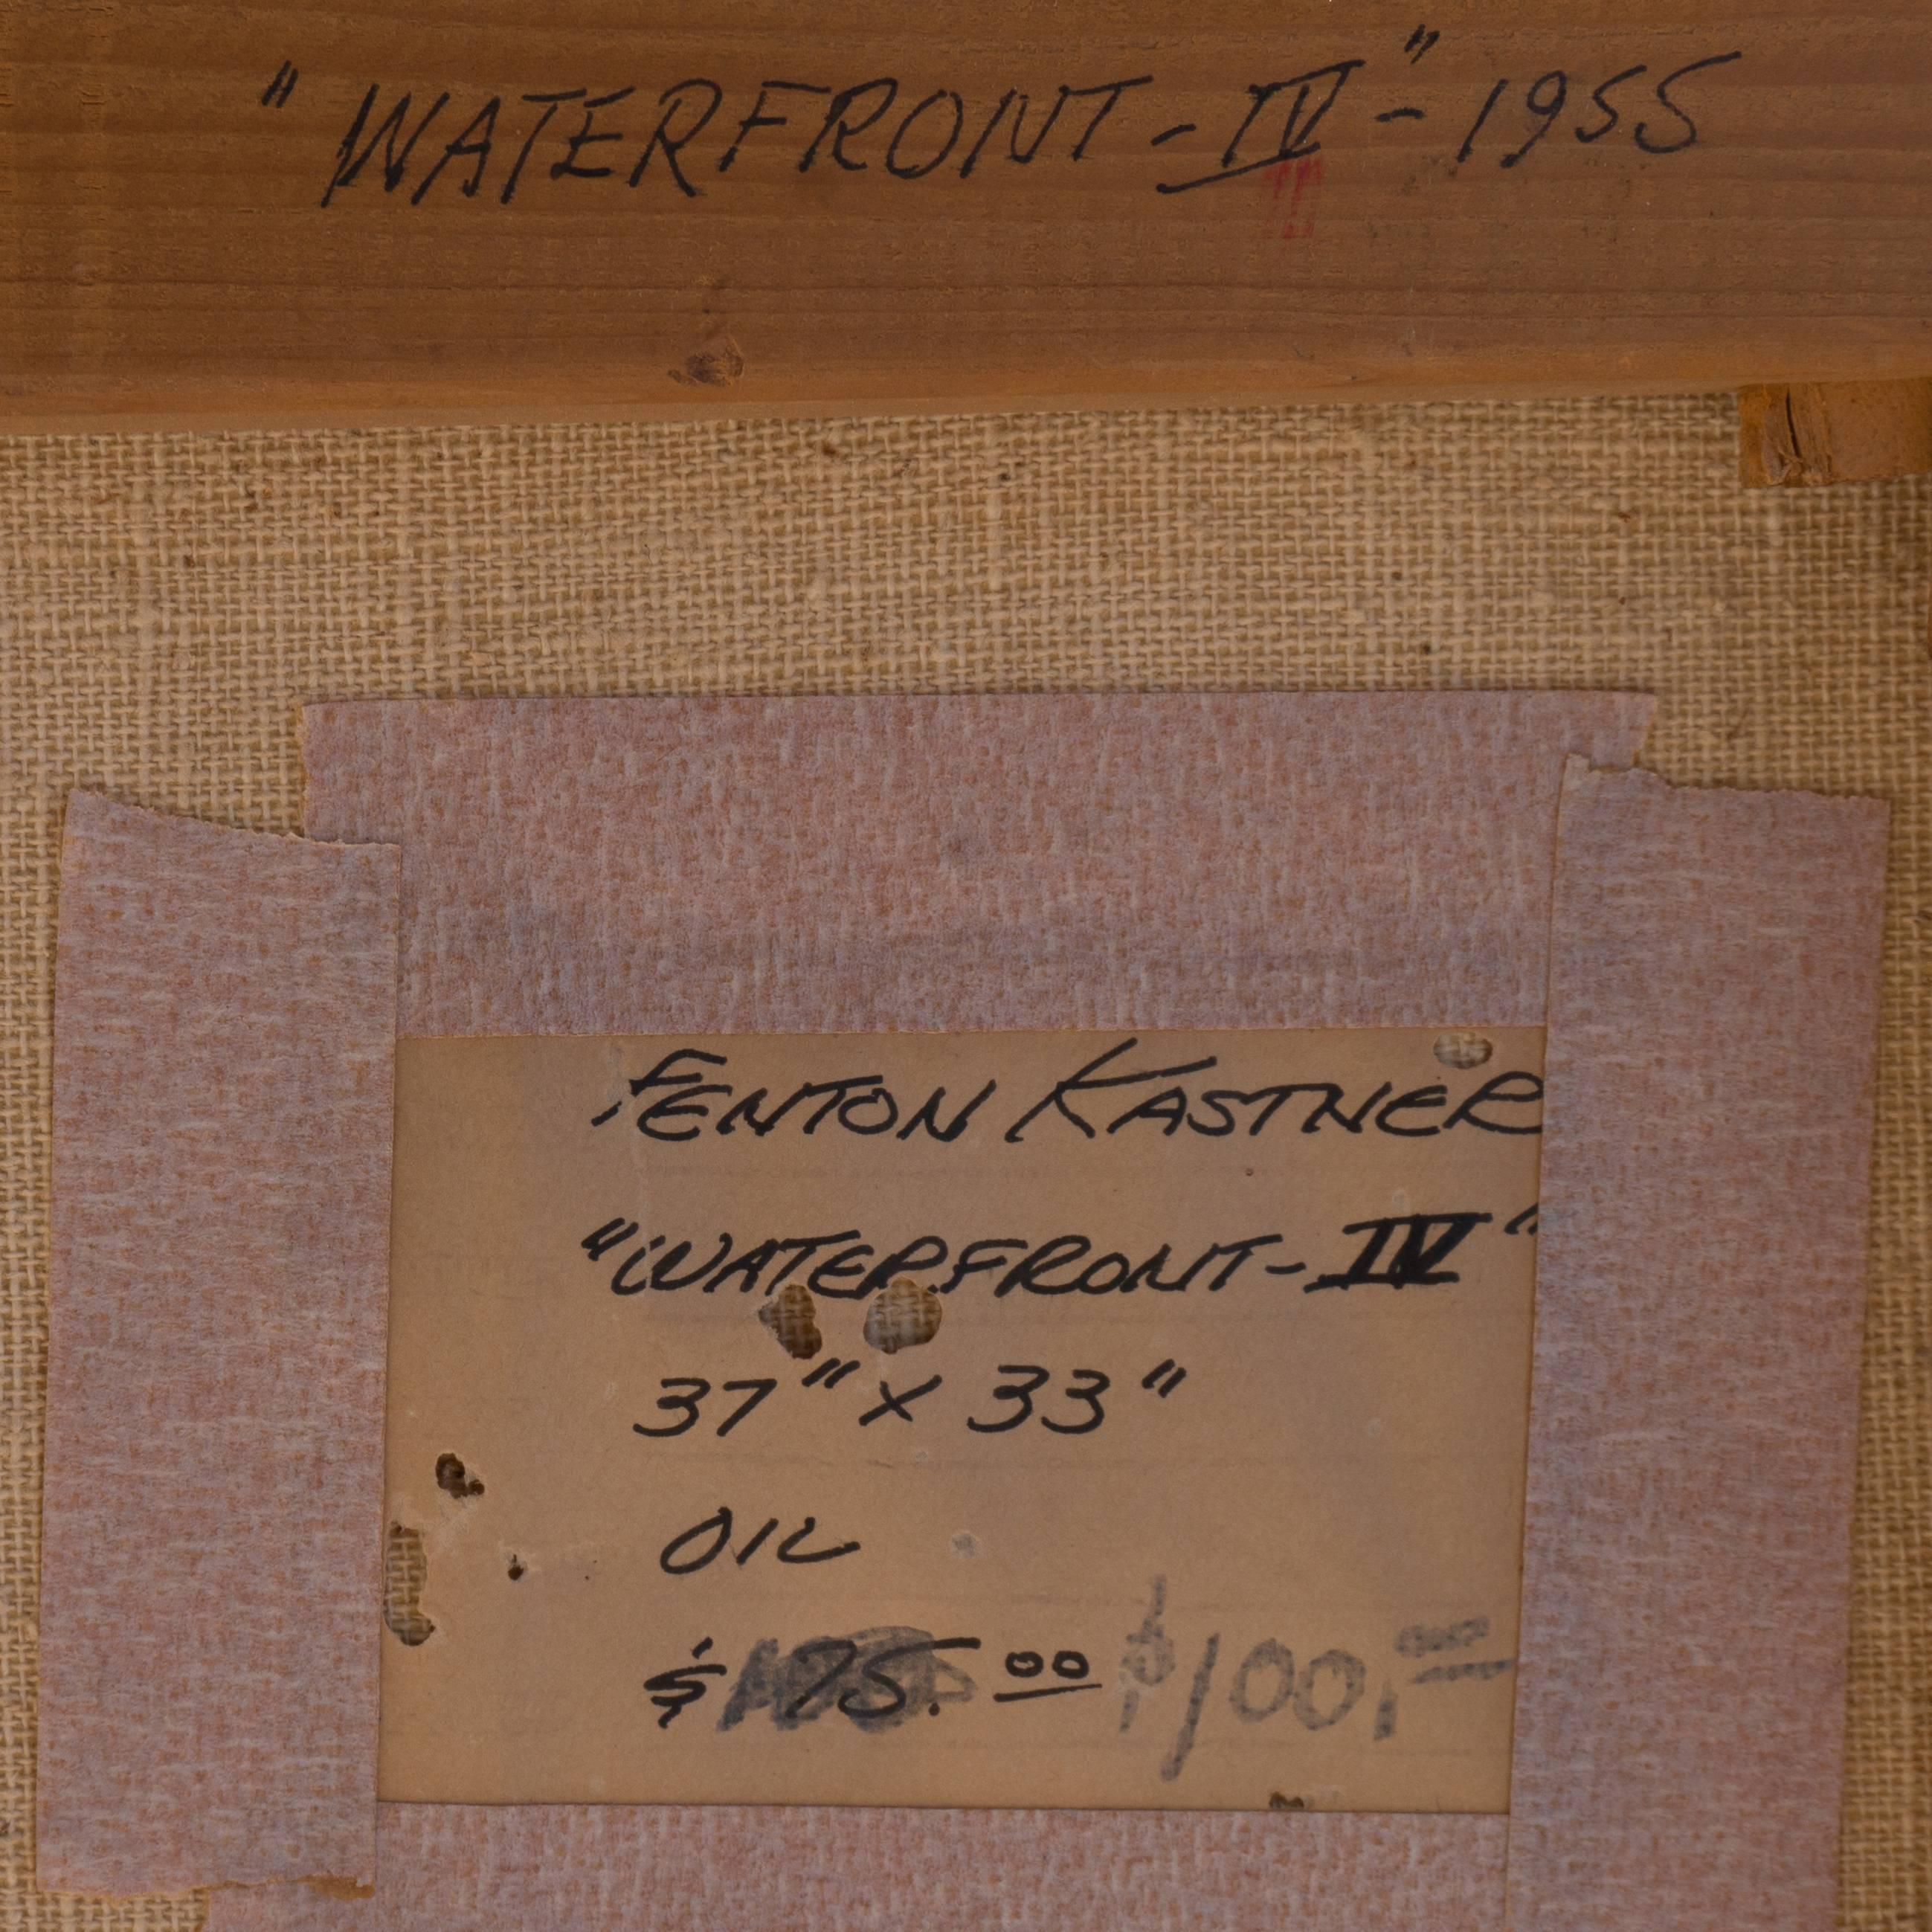 "WATERFRONT-IV"-1955
FENTON KASTNER
"WATERFRONT-IV"
37" X 33"
OIL
$ 75.00 $100.00